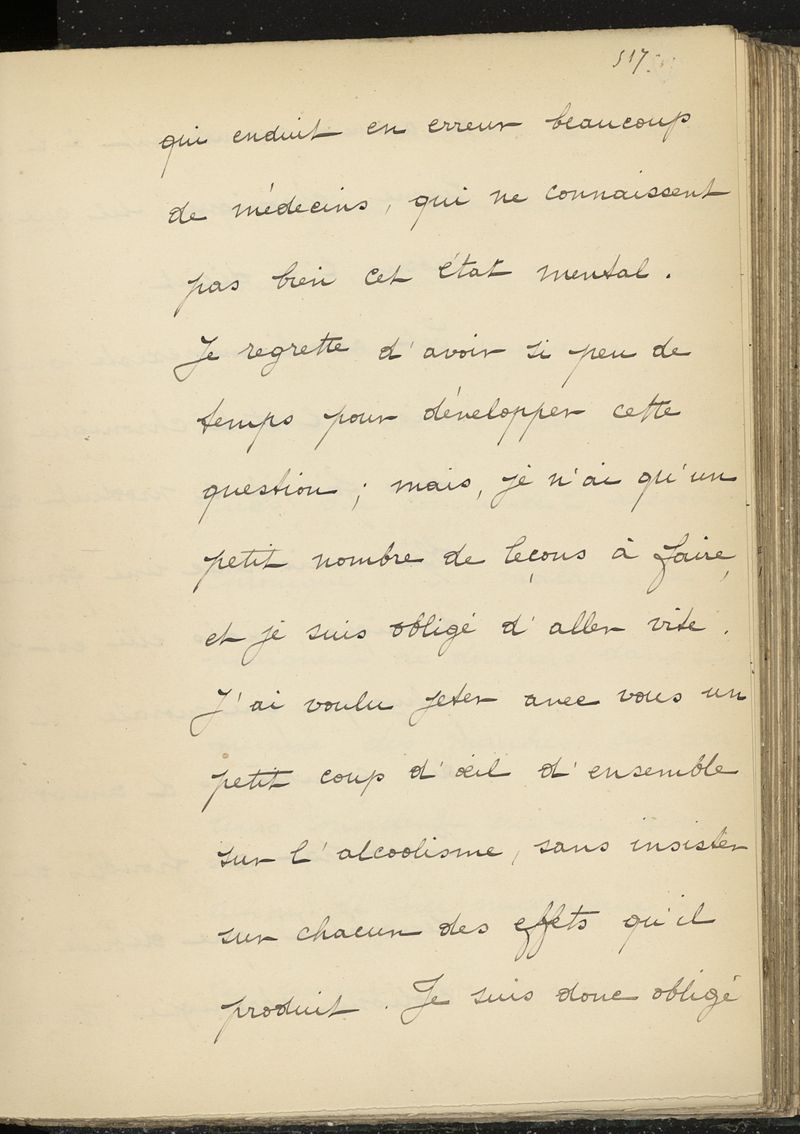 517
qui enduit en erreur beaucoup
de médecins, qui ne connaissent
pas bien cet état mental.
Je regrette d'avoir si peu de
temps pour développer cette
question ; mais, je n'ai qu'un
petit nombre de leçons à faire,
et je suis obligé d'aller vite.
J'ai voulu jeter avec vous un
petit coup d'œil d'ensemble
sur l'alcoolisme, sans insister
sur chacun des effets qu'il
produit. Je suis donc obligé